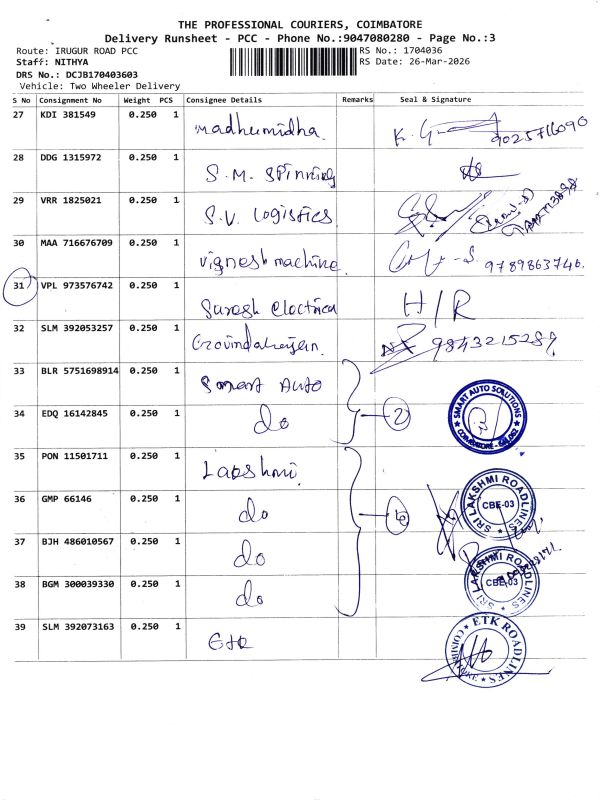 THE PROFESSIONAL COURIERS, COIMBATORE
Delivery Runsheet - PCC - Phone No.:9047080280 - Page No.:3
Route: IRUGUR ROAD PCC RS No.: 1704036
Staff: NITHYA RS Date: 26-Mar-2026
DRS No.: DCJB170403603
Vehicle: Two Wheeler Delivery
S No Consignment No Weight PCS Consignee Details Remarks Seal & Signature
27 KDI 381549 0.250 1 Madhumidha. 9025716090
28 DDG 1315972 0.250 1 S.M. Spinning
29 VRR 1825021 0.250 1 S.V. Logistics
30 MAA 716676709 0.250 1 Vignesh machine 9789863746.
31 VPL 973576742 0.250 1 Suresh Electrical H/R
32 SLM 392053257 0.250 1 9843215289
33 BLR 5751698914 0.250 1 Smart Auto
34 EDQ 16142845 0.250 1 do 2 SMART AUTO SOLUTIONS
35 PON 11501711 0.250 1 Lakshmi
36 GMP 66146 0.250 1 do SRI LAKSHMI ROADLINES CBE-03
37 BJH 486010567 0.250 1 do
38 BGM 300039330 0.250 1 do SRI LAKSHMI ROADLINES CBE-03
39 SLM 392073163 0.250 1 ETK ETK ROADLINES COIMBATORE